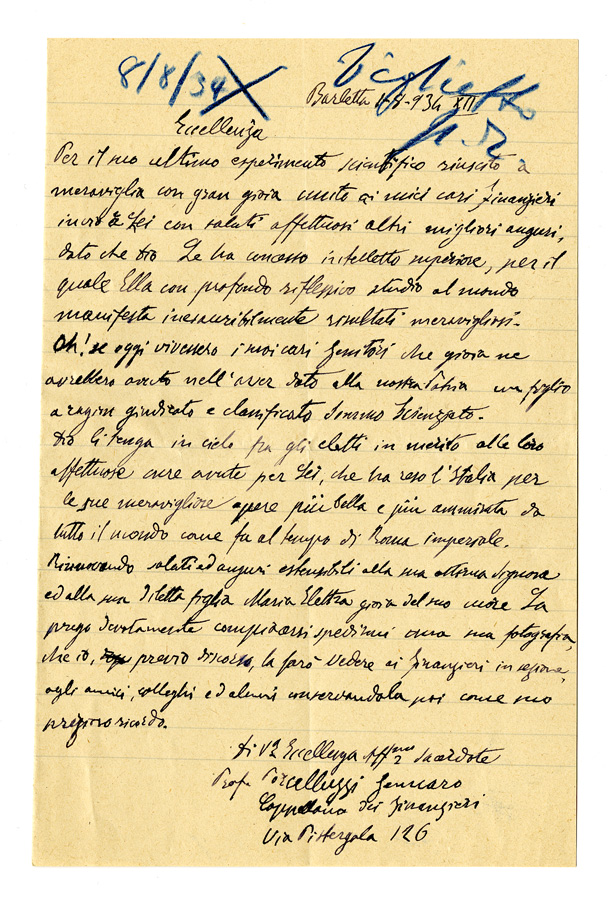 8/8/34
Viglietto
Barletta 4-8-934 XII
Eccellenza
Per il suo ultimo esperimento scientifico riuscito a
meraviglia con gran gioia unito ai miei cari Finanzieri
invio a Lei con saluti affettuosi altri migliori auguri,
dato che Dio Le ha concesso intelletto superiore, per il
quale Ella con profondo riflessivo studio al mondo
manifesta inesauribilmente risultati meravigliosi.
Oh! se oggi vivessero i suoi cari Genitori che gioia ne
avrebbero avuto nell'aver dato alla nostra Patria un figlio
a ragion giudicato e classificato Sommo Scienziato.
Dio li tenga in cielo fra gli eletti in merito alle loro
affettuose cure avute per Lei, che ha reso l'Italia per
le sue meravigliose opere più bella e più ammirata da
tutto il mondo come fu al tempo di Roma imperiale.
Rinnovando saluti ed auguri estensibili alla sua ottima Signora
ed alla sua diletta figlia Maria Elettra gioia del suo cuore La
prego devotamente compiacersi spedirmi una sua fotografia,
che io, previo discorso, la farò vedere ai Finanzieri in
agli amici, colleghi ed alunni conservandola poi come suo
prezioso ricordo.
Di V.a Eccellenza Aff.mo Sacerdote
Prof. Porcelluzzi Gennaro
Cappellano dei Finanzieri
Via Pistergola 126